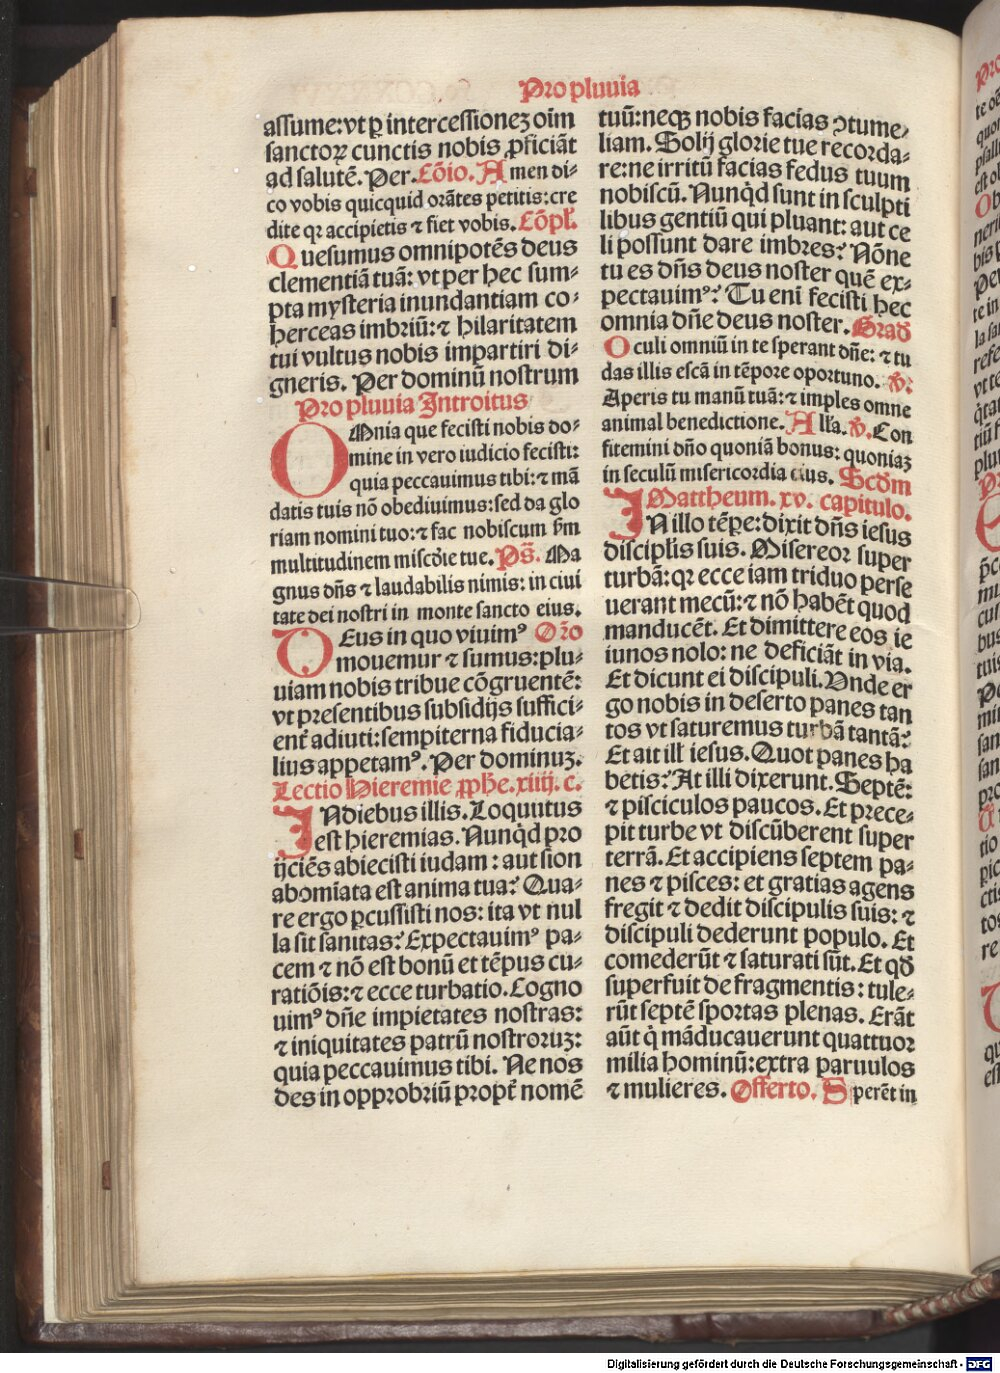 Pro pluuia
assume: vt ꝑ intercessionez oim̄
sanctoꝝ cunctis nobis ꝓficiāt
ad salutē. Per. Cōio. Amen di⸗
co vobis quicquid orātes petitis: cre
dite qꝛ accipietis ⁊ fiet vobis. Cōpl̄.
Quesumus omnipotēs deus
clementiā tuā: vt per hec sum⸗
pta mysteria inundantiam co⸗
herceas imbriū: ⁊ hilaritatem
tui vultus nobis impartiri di⸗
gneris. Per dominū nostrum
Pro pluuia Introitus
OMnia que fecisti nobis do⸗
mine in vero iudicio fecisti:
quia peccauimus tibi: ⁊ mā
datis tuis nō obediuimus: sed da glo
riam nomini tuo: ⁊ fac nobiscum ẜm
multitudinem miscd̄ie tue. Ps̄. Ma
gnus dn̄s ⁊ laudabilis nimis: in ciui
tate dei nostri in monte sancto eius.
DEus in quo viuimꝰ Or̄o
mouemur ⁊ sumus: plu⸗
uiam nobis tribue cōgruentē:
vt presentibus subsidijs suffici⸗
ent̄ adiuti: sempiterna fiducia⸗
lius appetamꝰ. Per dominuꝫ.
Lectio Hieremie ꝓphe. xiiij. c.
INdiebus illis. Loquutus
est hieremias. Nunqͥd pro
ijciēs abiecisti iudam: aut sion
abomīata est anima tua? Qua⸗
re ergo ꝑcussisti nos: ita vt nul
la sit sanitas? Expectauimꝰ pa⸗
cem ⁊ nō est bonū et tēpus cu⸗
ratiōis: ⁊ ecce turbatio. Cogno
uimꝰ dn̄e impietates nostras:
⁊ iniquitates patrū nostroruꝫ:
quia peccauimus tibi. Ne nos
des in opprobriū propt̄ nomē
tuū: neqꝫ nobis facias ↄtume⸗
liam. Solij glorie tue recorda⸗
re: ne irritū facias fedus tuum
nobiscū. Nunqͥd sunt in sculpti
libus gentiū qui pluant: aut ce
li possunt dare imbres? Nōne
tu es dn̄s deus noster quē ex⸗
pectauimꝰ? Tu eni̅ fecisti hec
omnia dn̄e deus noster. Grad̄
Oculi omniū in te sperant dn̄e: ⁊ tu
das illis escā in tēpore oportuno. V̄:
Aperis tu manū tuā: ⁊ imples omne
animal benedictione. All̄a. V̄. Con
fitemini dn̄o quoniā bonus: quoniaꝫ
in seculū misericordia eius. Scd̄m
Mattheum. xv. capitulo.
IN illo tēꝑe: dixit dn̄s iesus
discipl̄is suis. Misereor super
turbā: qꝛ ecce iam triduo perse
uerant mecū: ⁊ nō habēt quod
manducēt. Et dimittere eos ie
iunos nolo: ne deficiāt in via.
Et dicunt ei discipuli. Vnde er
go nobis in deserto panes tan
tos vt saturemus turbā tantā?
Et ait ill̄ iesus. Quot panes ha
betis? At illi dixerunt. Septē:
⁊ pisciculos paucos. Et prece⸗
pit turbe vt discūberent super
terrā. Et accipiens septem pa⸗
nes ⁊ pisces: et gratias agens
fregit ⁊ dedit discipulis suis: ⁊
discipuli dederunt populo. Et
comederūt ⁊ saturati sūt. Et qd̄
superfuit de fragmentis: tule⸗
rūt septē sportas plenas. Erāt
aūt qͥ māducauerunt quattuor
milia hominū: extra paruulos
⁊ mulieres. Offerto. Sperēt in
Digitalisierung gefördert durch die Deutsche Forschungsgemeinschaft - DFG